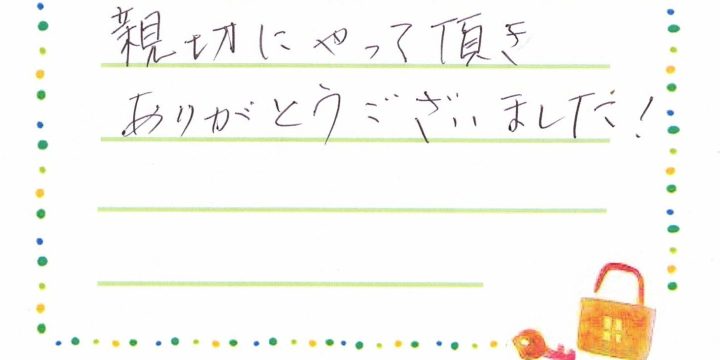 親切にやって頂き
ありがとうございました!